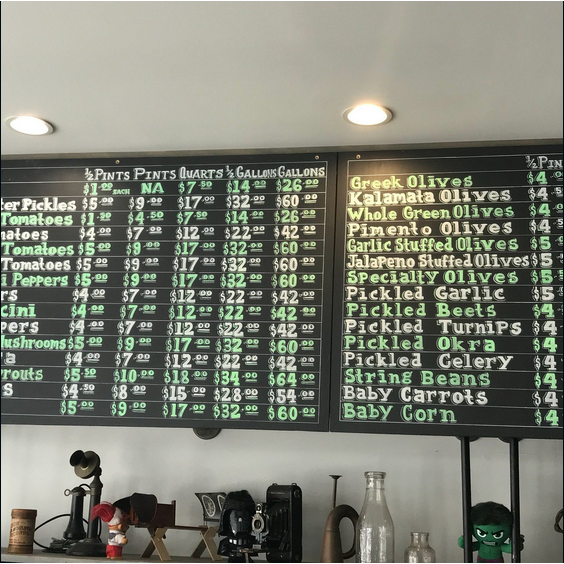 ½ PINTS PINTS QUARTS ½ GALLONS GALLONS
$1.00 EACH NA $7.50 $14.00 $26.00
ter Pickles $5.00 $9.00 $17.00 $32.00 $60.00
Tomatoes $1.50 $4.50 $7.50 $14.00 $26.00
matoes $4.00 $7.00 $12.00 $22.00 $42.00
Tomatoes $5.00 $9.00 $17.00 $32.00 $60.00
Tomatoes $5.00 $9.00 $17.00 $32.00 $60.00
i Peppers $5.00 $9.00 $17.00 $32.00 $60.00
rs $4.00 $7.00 $12.00 $22.00 $42.00
cini $4.00 $7.00 $12.00 $22.00 $42.00
pers $4.00 $7.00 $12.00 $22.00 $42.00
ushrooms $5.00 $9.00 $17.00 $32.00 $60.00
a $4.00 $7.00 $12.00 $22.00 $42.00
routs $5.50 $10.00 $18.00 $34.00 $64.00
s $4.50 $8.00 $15.00 $28.00 $54.00
$5.00 $9.00 $17.00 $32.00 $60.00
½ PIN
Greek Olives $4
Kalamata Olives $4
Whole Green Olives $4
Pimento Olives $4
Garlic Stuffed Olives $5
Jalapeno Stuffed Olives $5
Specialty Olives $5
Pickled Garlic $5
Pickled Beets $4
Pickled Turnips $4
Pickled Okra $4
Pickled Celery $4
String Beans $4
Baby Carrots $4
Baby Corn $4